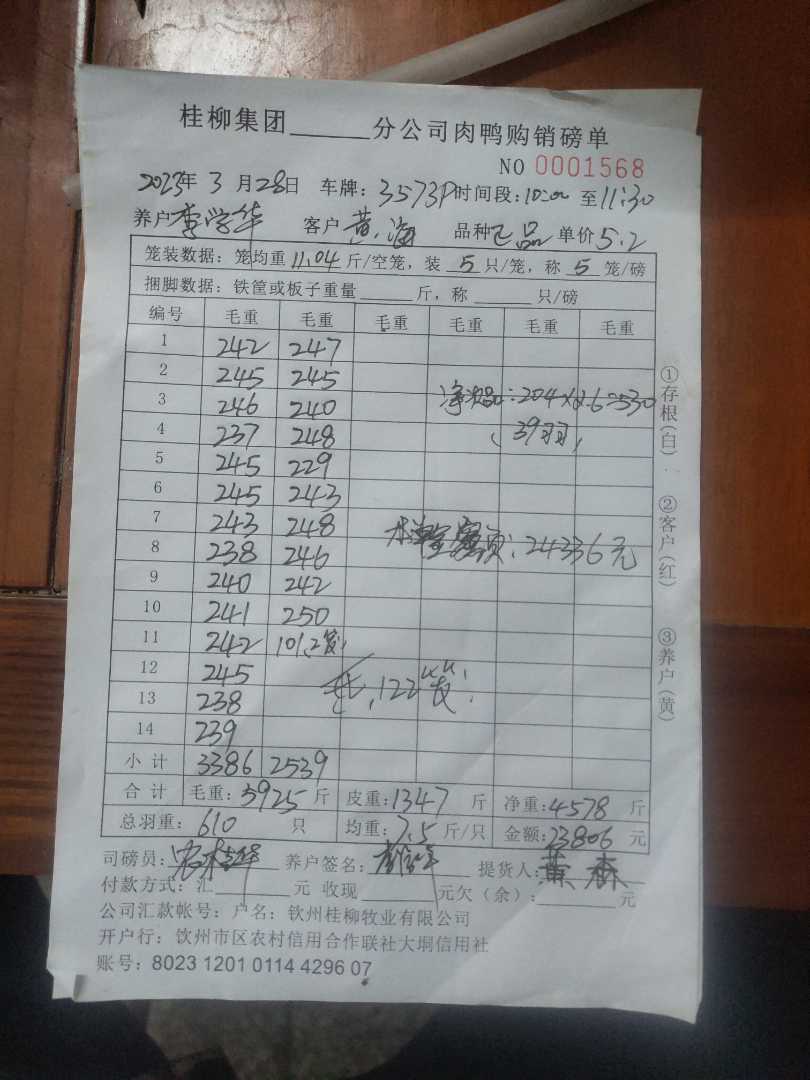 桂柳集团______分公司肉鸭购销磅单
NO 0001568
2023年 3 月 28日 车牌：3573P 时间段：10:00 至 11:30
养户 李学华 客户 黄海 品种 正品 单价 5.2
笼装数据：笼均重 11.04 斤/空笼，装 5 只/笼，称 5 笼/磅
捆脚数据：铁筐或板子重量______斤，称______只/磅
编号 毛重 毛重 毛重 毛重 毛重 毛重
1 242 247
2 245 245
3 246 240
净次品：204×2.6=530
4 237 248
(39羽)
5 245 229
6 245 243
7 243 248
8 238 246
总金额：24336元
9 240 242
10 241 250
11 242 101(2笼)
12 245
共122笼
13 238
14 239
小计 3386 2539
合计 毛重：5925 斤 皮重：1347 斤 净重：4578 斤
总羽重：610 只 均重：7.5 斤/只 金额：23806 元
司磅员： 养户签名： 提货人：黄森
付款方式：汇______元 收现______元欠（余）：______元
公司汇款帐号：户名：钦州桂柳牧业有限公司
开户行：钦州市区农村信用合作联社大垌信用社
账号：8023 1201 0114 4296 07
①存根（白）
②客户（红）
③养户（黄）